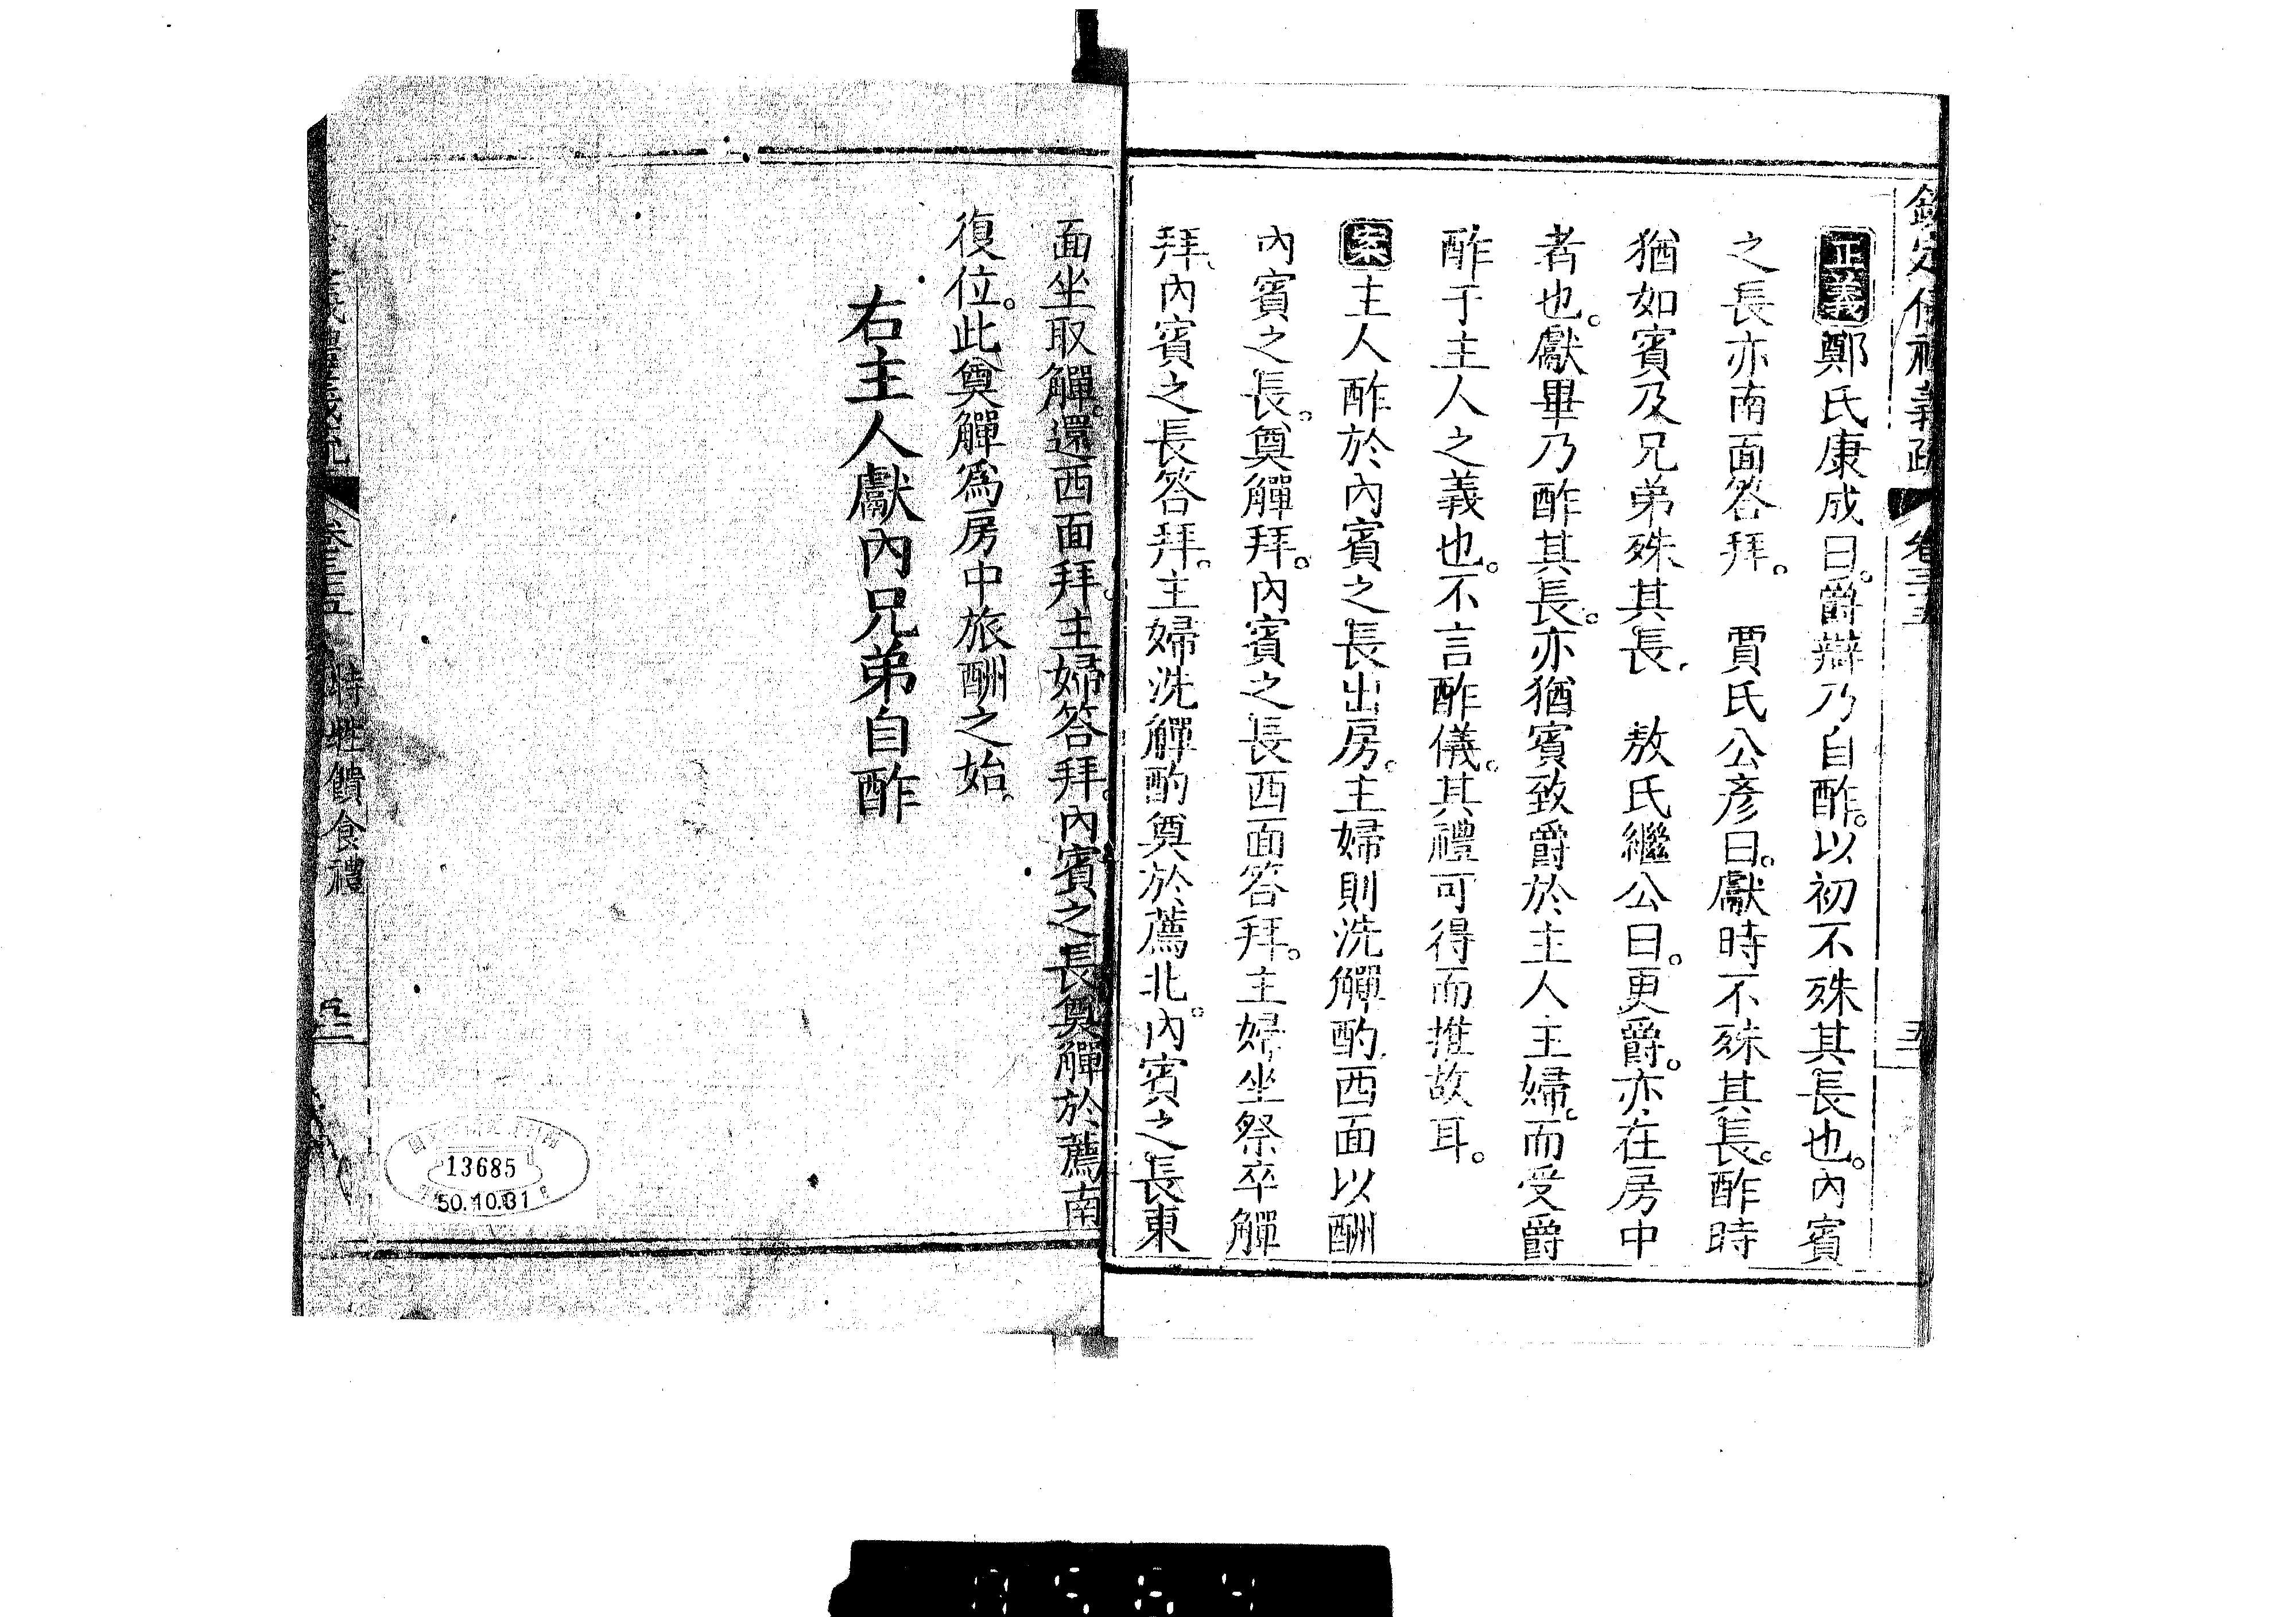 正義鄭氏康成曰。爵辯乃自酢。以初不殊其長也。內賓
之長亦南面答拜。　賈氏公彥曰。獻時不殊其長。酢時
猶如賓及兄弟殊其長　敖氏繼公曰。更爵。亦在房中
者也。獻畢乃酢其長。亦猶賓致爵於主人主婦。而受爵
酢于主人之義也。不言酢儀。其禮可得而推故耳。
案主人酢於內賓之長出房。主婦則洗觶酌西面以酬
內賓之長。奠觶拜。內賓之長西面答拜。主婦坐祭卒觶
拜、內賓之長答拜。主婦洗觶酌奠於薦北。內賓之長東
面坐取觶。還西面拜。主婦答拜。內賓之長奠觶於薦南
復位。此奠觶為房中旅酬之始。
右主人獻內兄弟自酢
特牲饋食禮
13685
50.10.31